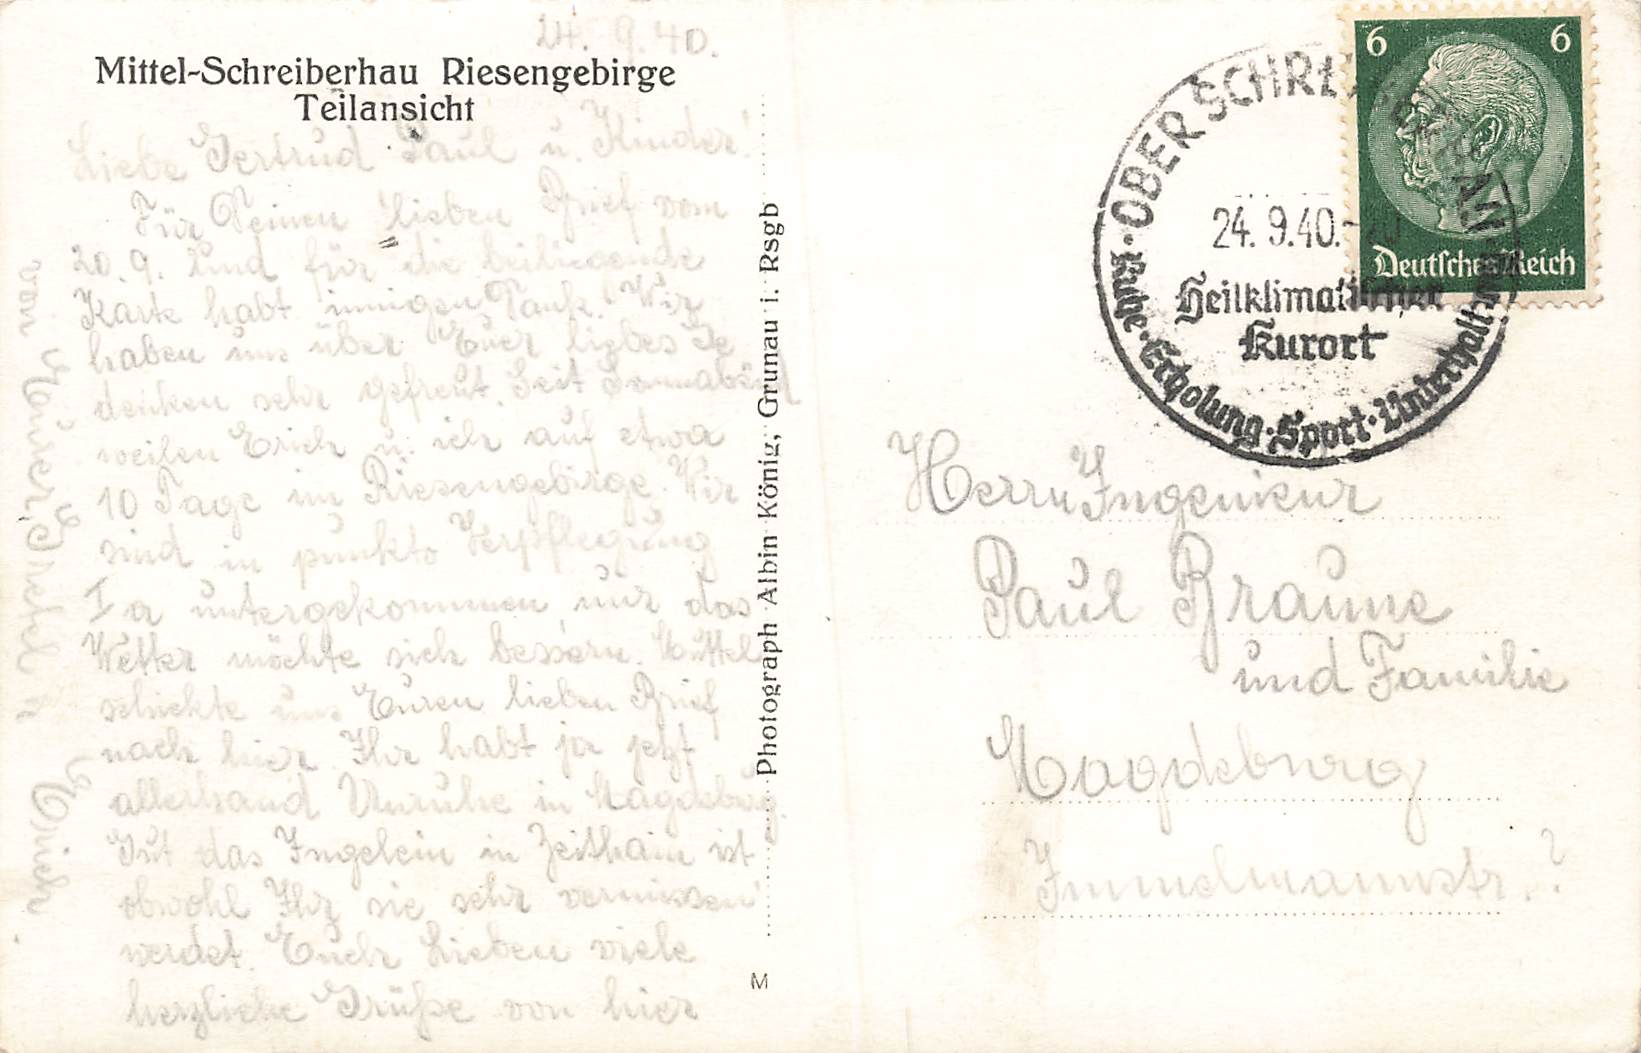 24. 9. 40.
Mittel-Schreiberhau Riesengebirge
Teilansicht
Liebe Gertrud Paul u. Kinder!
Für Deinen lieben Brief vom
20. 9. und für die beiliegende
Karte habt innigen Dank. Wir
haben uns über Euer liebes Ge
denken sehr gefreut. Seit Sonnabend
weilen Erich u. ich auf etwa
10 Tage im Riesengebirge. Wir
sind in punkto Verpflegung
Ia untergekommen nur das
Wetter möchte sich bessern. Muttel
schickte uns Euren lieben Brief
nach hier. Ihr habt ja jetzt
allerhand Unruhe in Magdeburg.
Gut das Ingelein in Zeithain ist
obwohl Ihr sie sehr vermissen
werdet. Euch Lieben viele
herzliche Grüße von hier
von Eurer u. Erich.
Photograph Albin König, Grunau i. Rsgb
M
OBER SCHREIBERHAU
24. 9. 40.-20
Heilklimatischer
Kurort
Ruhe · Erholung · Sport · Unterhaltung
6 6
Deutsches Reich
Herrn Ingenieur
Paul Braune
und Familie
Magdeburg
Immelmannstr. ?